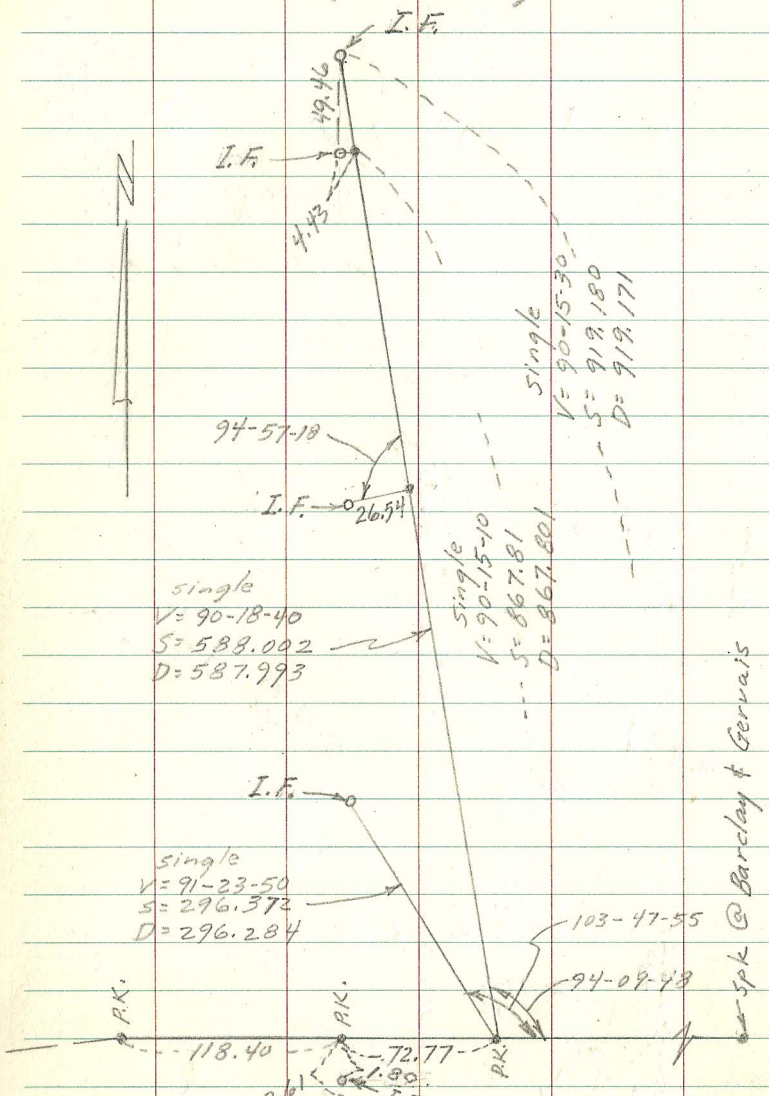 I.F.
49.46
I.F.
4.43
N
single
V= 90-15-30
S= 919.180
D= 919.171
94-57-18
I.F.
26.54
single
V= 90-15-10
S= 867.81
D= 867.801
single
V= 90-18-40
S= 588.002
D= 587.993
I.F.
single
V= 91-23-50
S= 296.372
D= 296.284
103-47-55
94-09-48
Spk @ Barclay & Gervais
P.K.
P.K.
P.K.
118.40
72.77
1.80